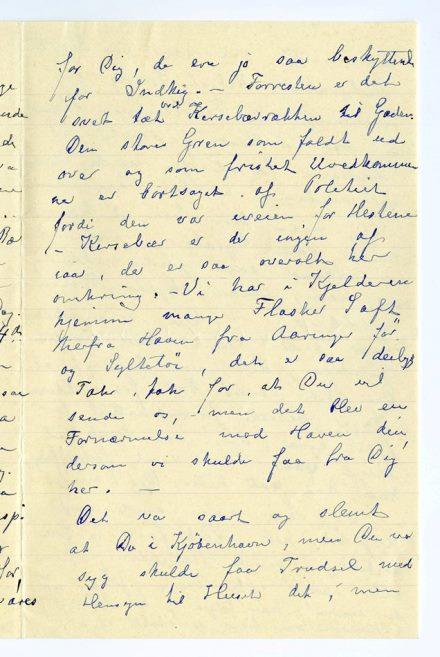 for Dig, de ere jo saa beskyttende
for Indkig. – Forresten er det
svært tæt ved Kersebærrækken til Gaden.
Den store Green som faldt ud
over og som fristet Uvedkommen
ne er bortsaget af Politiet
fordi den var iveien for Hestene
– Kersebær er der ingen af
iaar, de er saa overalt her
omkring. – Vi har i Kjelderen
hjemme mange Flasker Saft
herfra Haven fra Aaringer før
og Syltetøi, det er saa deiligt
Tak, tak for, at Du vil
sende os, – men det blev en
Fornærmelse mod Haven din,
dersom vi skulde faa fra Dig
her. –
Det va saart og slemt
at Du i Kjøbenhavn, mens Du var
syg skulde faa Trudsel med
Hensyn til Huset dit, men